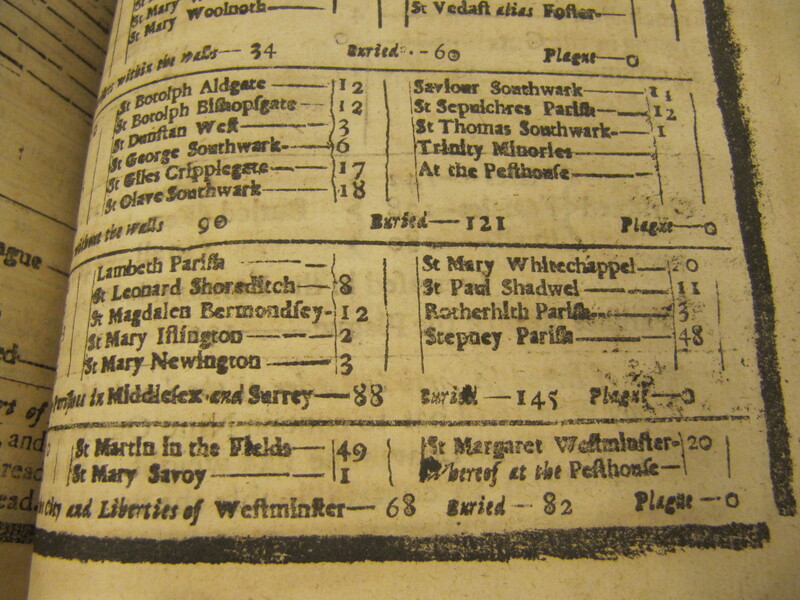 St Mary Woolnoth
St Vedast alias Foster
within the walls 34 Buried 60 Plague 0
St Botolph Aldgate 12
St Botolph Bishopsgate 12
St Dunstan West 3
St George Southwark 6
St Giles Cripplegate 17
St Olave Southwark 18
Saviour Southwark 11
St Sepulchres Parish 12
St Thomas Southwark 1
Trinity Minories
At the Pesthouse
without the walls 90 Buried 121 Plague 0
Lambeth Parish
St Leonard Shoreditch 8
St Magdalen Bermondsey 12
St Mary Islington 2
St Mary Newington 3
St Mary Whitechappel 20
St Paul Shadwel 11
Rotherhith Parish 3
Stepney Parish 48
in Middlesex and Surrey 88 Buried 145 Plague 0
St Martin in the Fields 49
St Mary Savoy 1
St Margaret Westminster 20
Whereof at the Pesthouse
and Liberties of Westminster 68 Buried 82 Plague 0